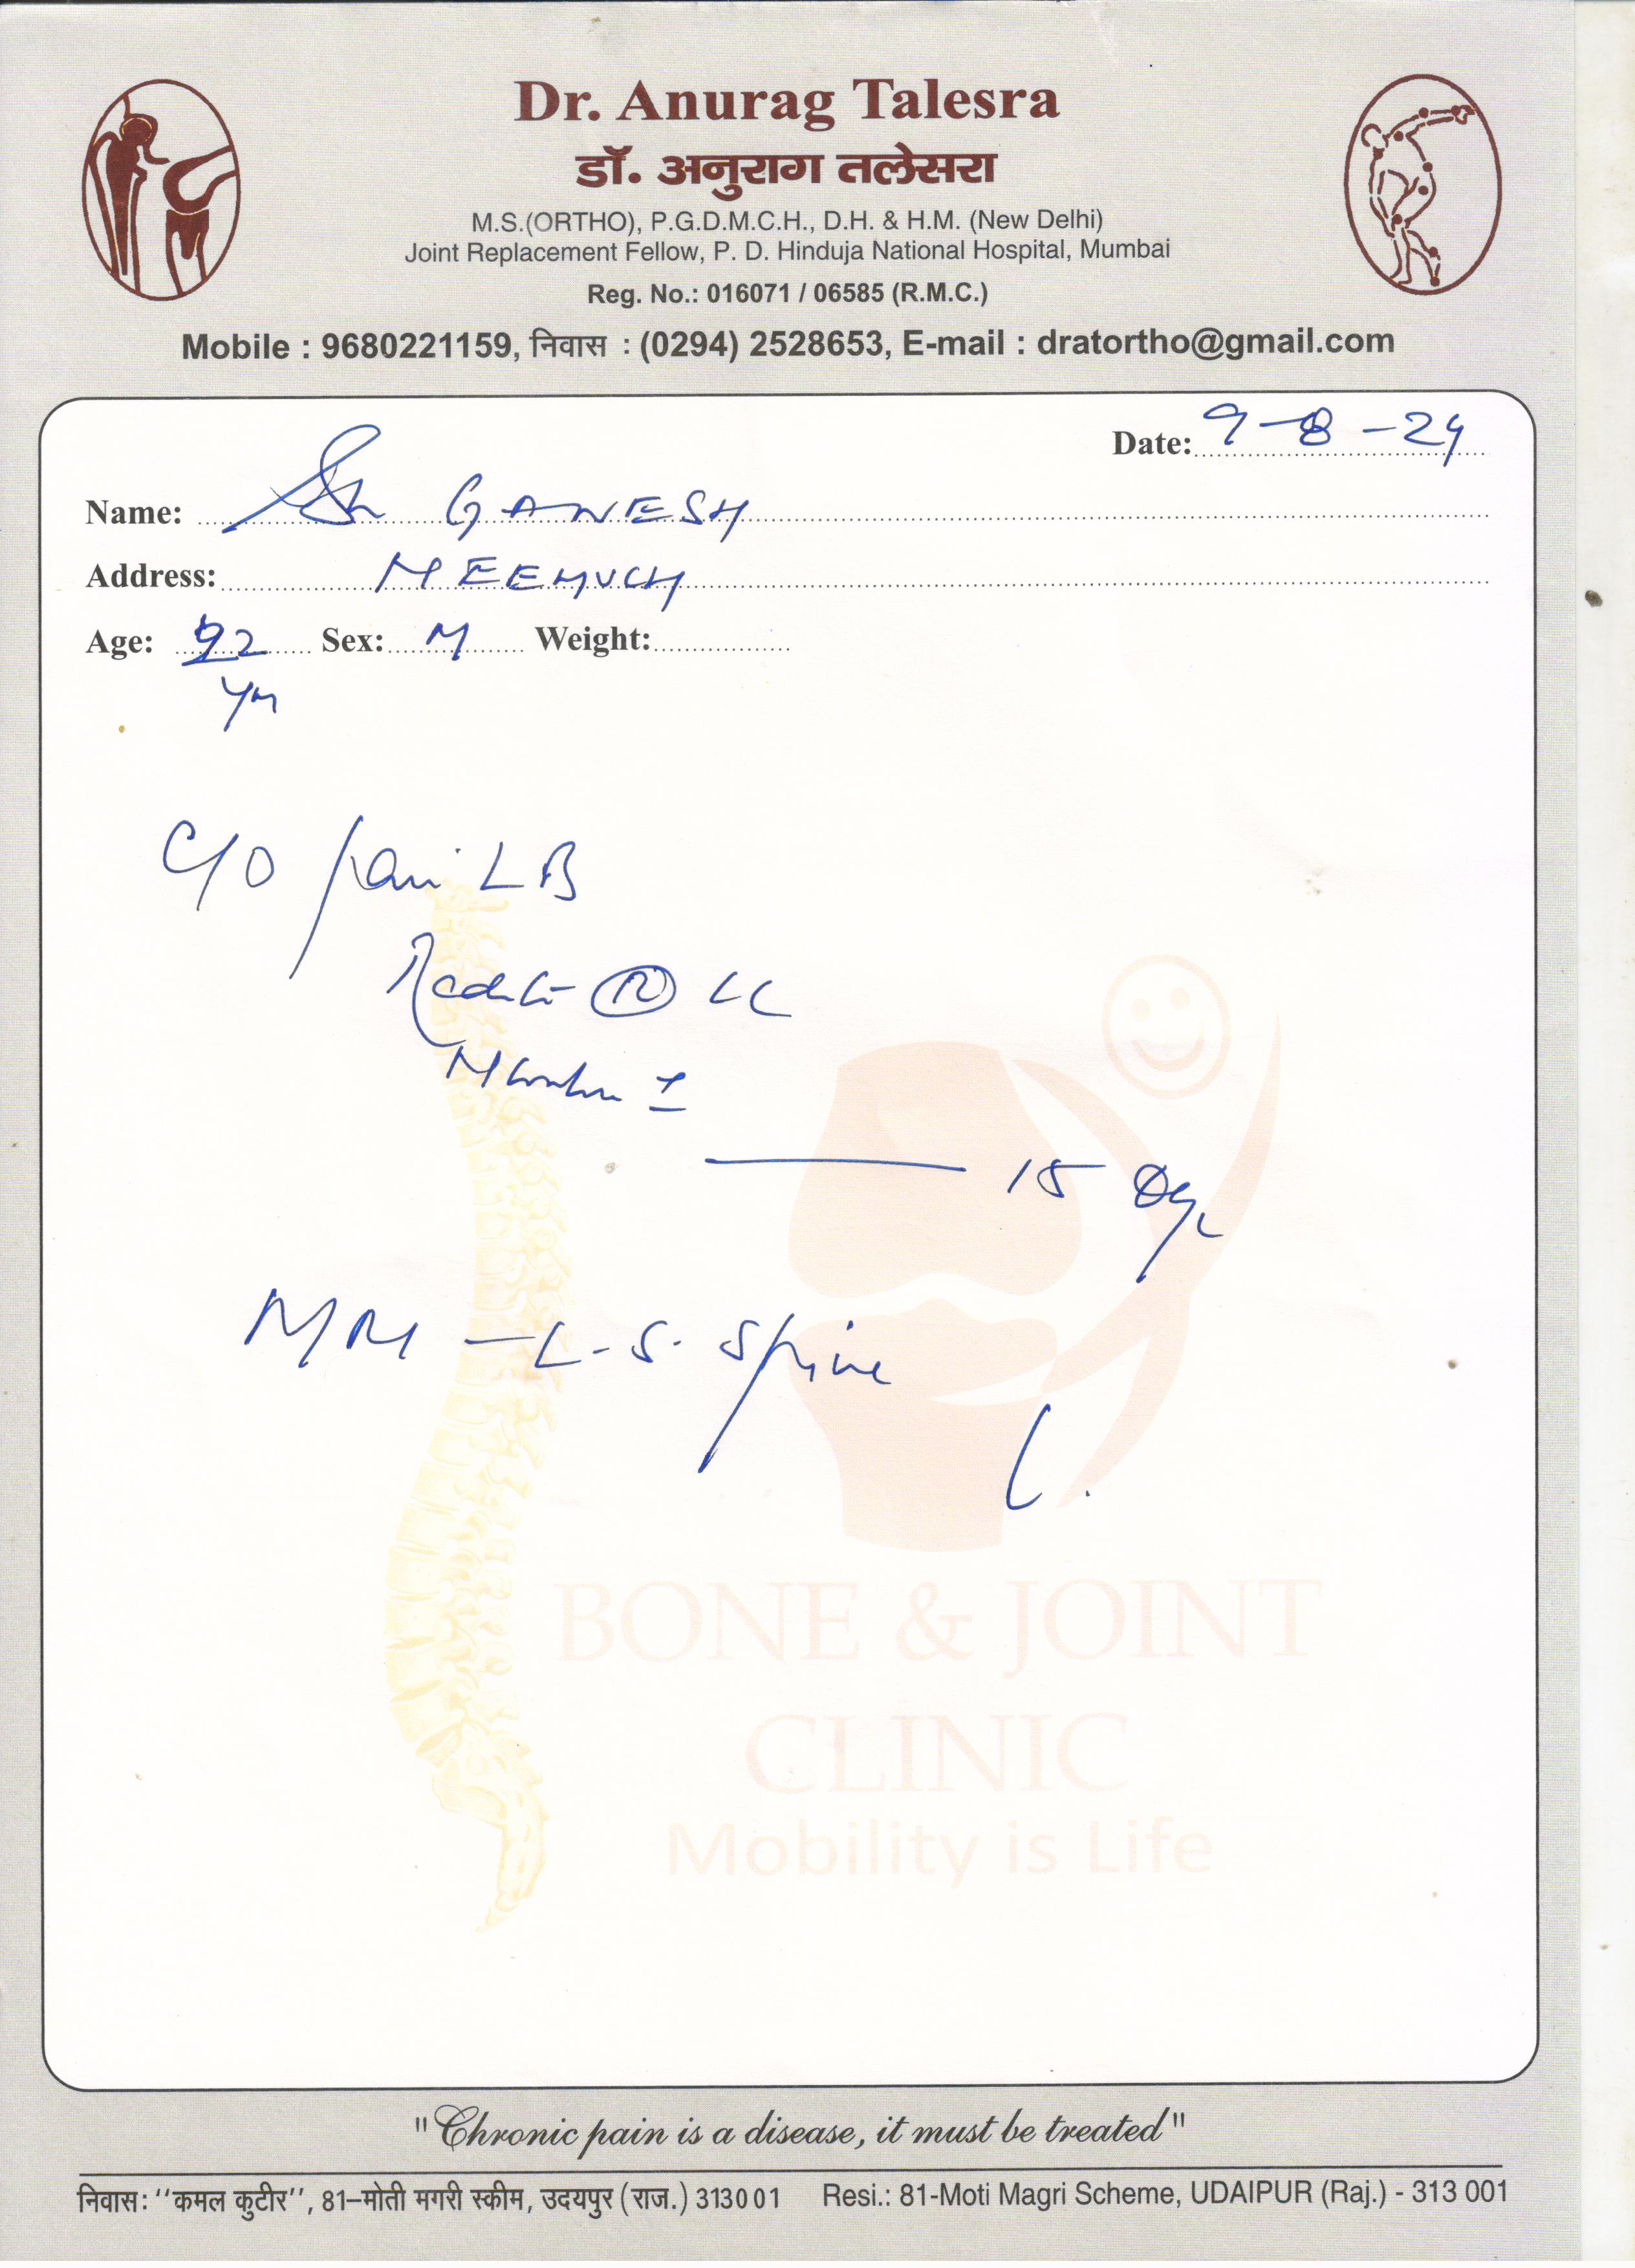 Dr. Anurag Talesra
डॉ. अनुराग तलेसरा
M.S.(ORTHO), P.G.D.M.C.H., D.H. & H.M. (New Delhi)
Joint Replacement Fellow, P. D. Hinduja National Hospital, Mumbai
Reg. No.: 016071 / 06585 (R.M.C.)
Mobile : 9680221159, निवास : (0294) 2528653, E-mail : dratortho@gmail.com
Date: 9-8-24
Name: Sh GANESH
Address: NEEMUCH
Age: Sex: M Weight:
C/O Pain LB
R LL
15 Days
MRI - L-S. Spine
BONE & JOINT
CLINIC
Mobility is Life
"Chronic pain is a disease, it must be treated"
निवास: ''कमल कुटीर'', 81-मोती मगरी स्कीम, उदयपुर (राज.) 313001 Resi.: 81-Moti Magri Scheme, UDAIPUR (Raj.) - 313 001